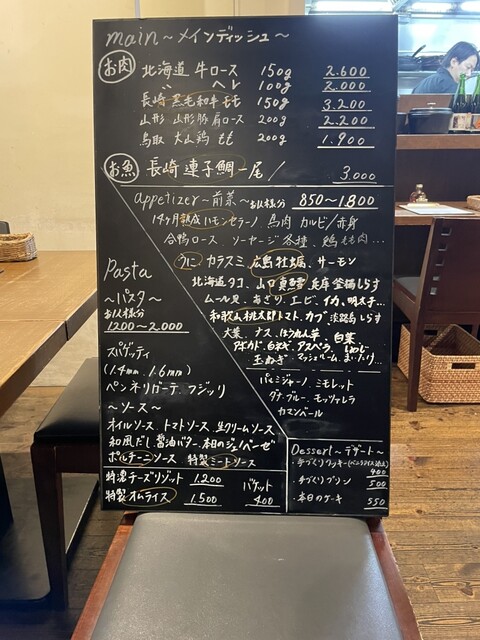 main ～メインディッシュ～
お肉
北海道 牛ロース 150g 2.600
〃 ヘレ 100g 2.000
長崎 黒毛和牛モモ 150g 3.200
山形 山形豚肩ロース 200g 2.200
鳥取 大山鶏もも 200g 1.900
お魚 長崎 連子鯛 一尾 / 3.000
appetizer～前菜～お1人様分 850～1.800
14ヶ月熟成ハモンセラーノ、馬肉 カルビ/赤身
合鴨ロース ソーセージ各種、鶏もも肉…
うに カラスミ 広島牡蠣、サーモン
北海道タコ、山口真鱈、兵庫釜揚しらす
ムール貝、あさり、エビ、イカ、明太子…
和歌山桃太郎トマト、カブ、淡路島しらす
大葉、ナス、ほうれん草、白菜
アボカド、白ネギ、アスパラ、しめじ
玉ねぎ、マッシュルーム、まいたけ…
パルミジャーノ、ミモレット
ダナブルー、モッツァレラ
カマンベール
Pasta
～パスタ～
お1人様分
1200～2.000
スパゲッティ
(1.4mm、1.6mm)
ペンネリガーテ、フジッリ
～ソース～
オイルソース、トマトソース、生クリームソース
和風だし醤油バター、本日のジェノベーゼ
ポルチーニソース 特製ミートソース
特濃チーズリゾット 1.200
特製オムライス 1.500
バケット 400
Dessert～デザート～
・手づくりクッキー(バニラアイス添え) 400
・手づくりプリン 500
・本日のケーキ 550